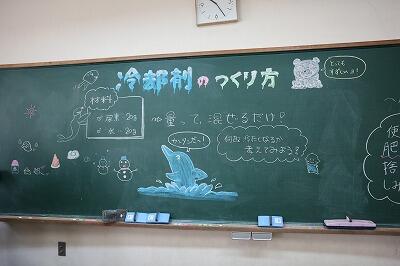 冷却剤のつくり方
とっても
すずしいヨ!
材料
尿素…20g
水…20g
量って、混ぜるだけ!
何故冷たくなるか
考えてみよう?
使
肥
捨
しみ